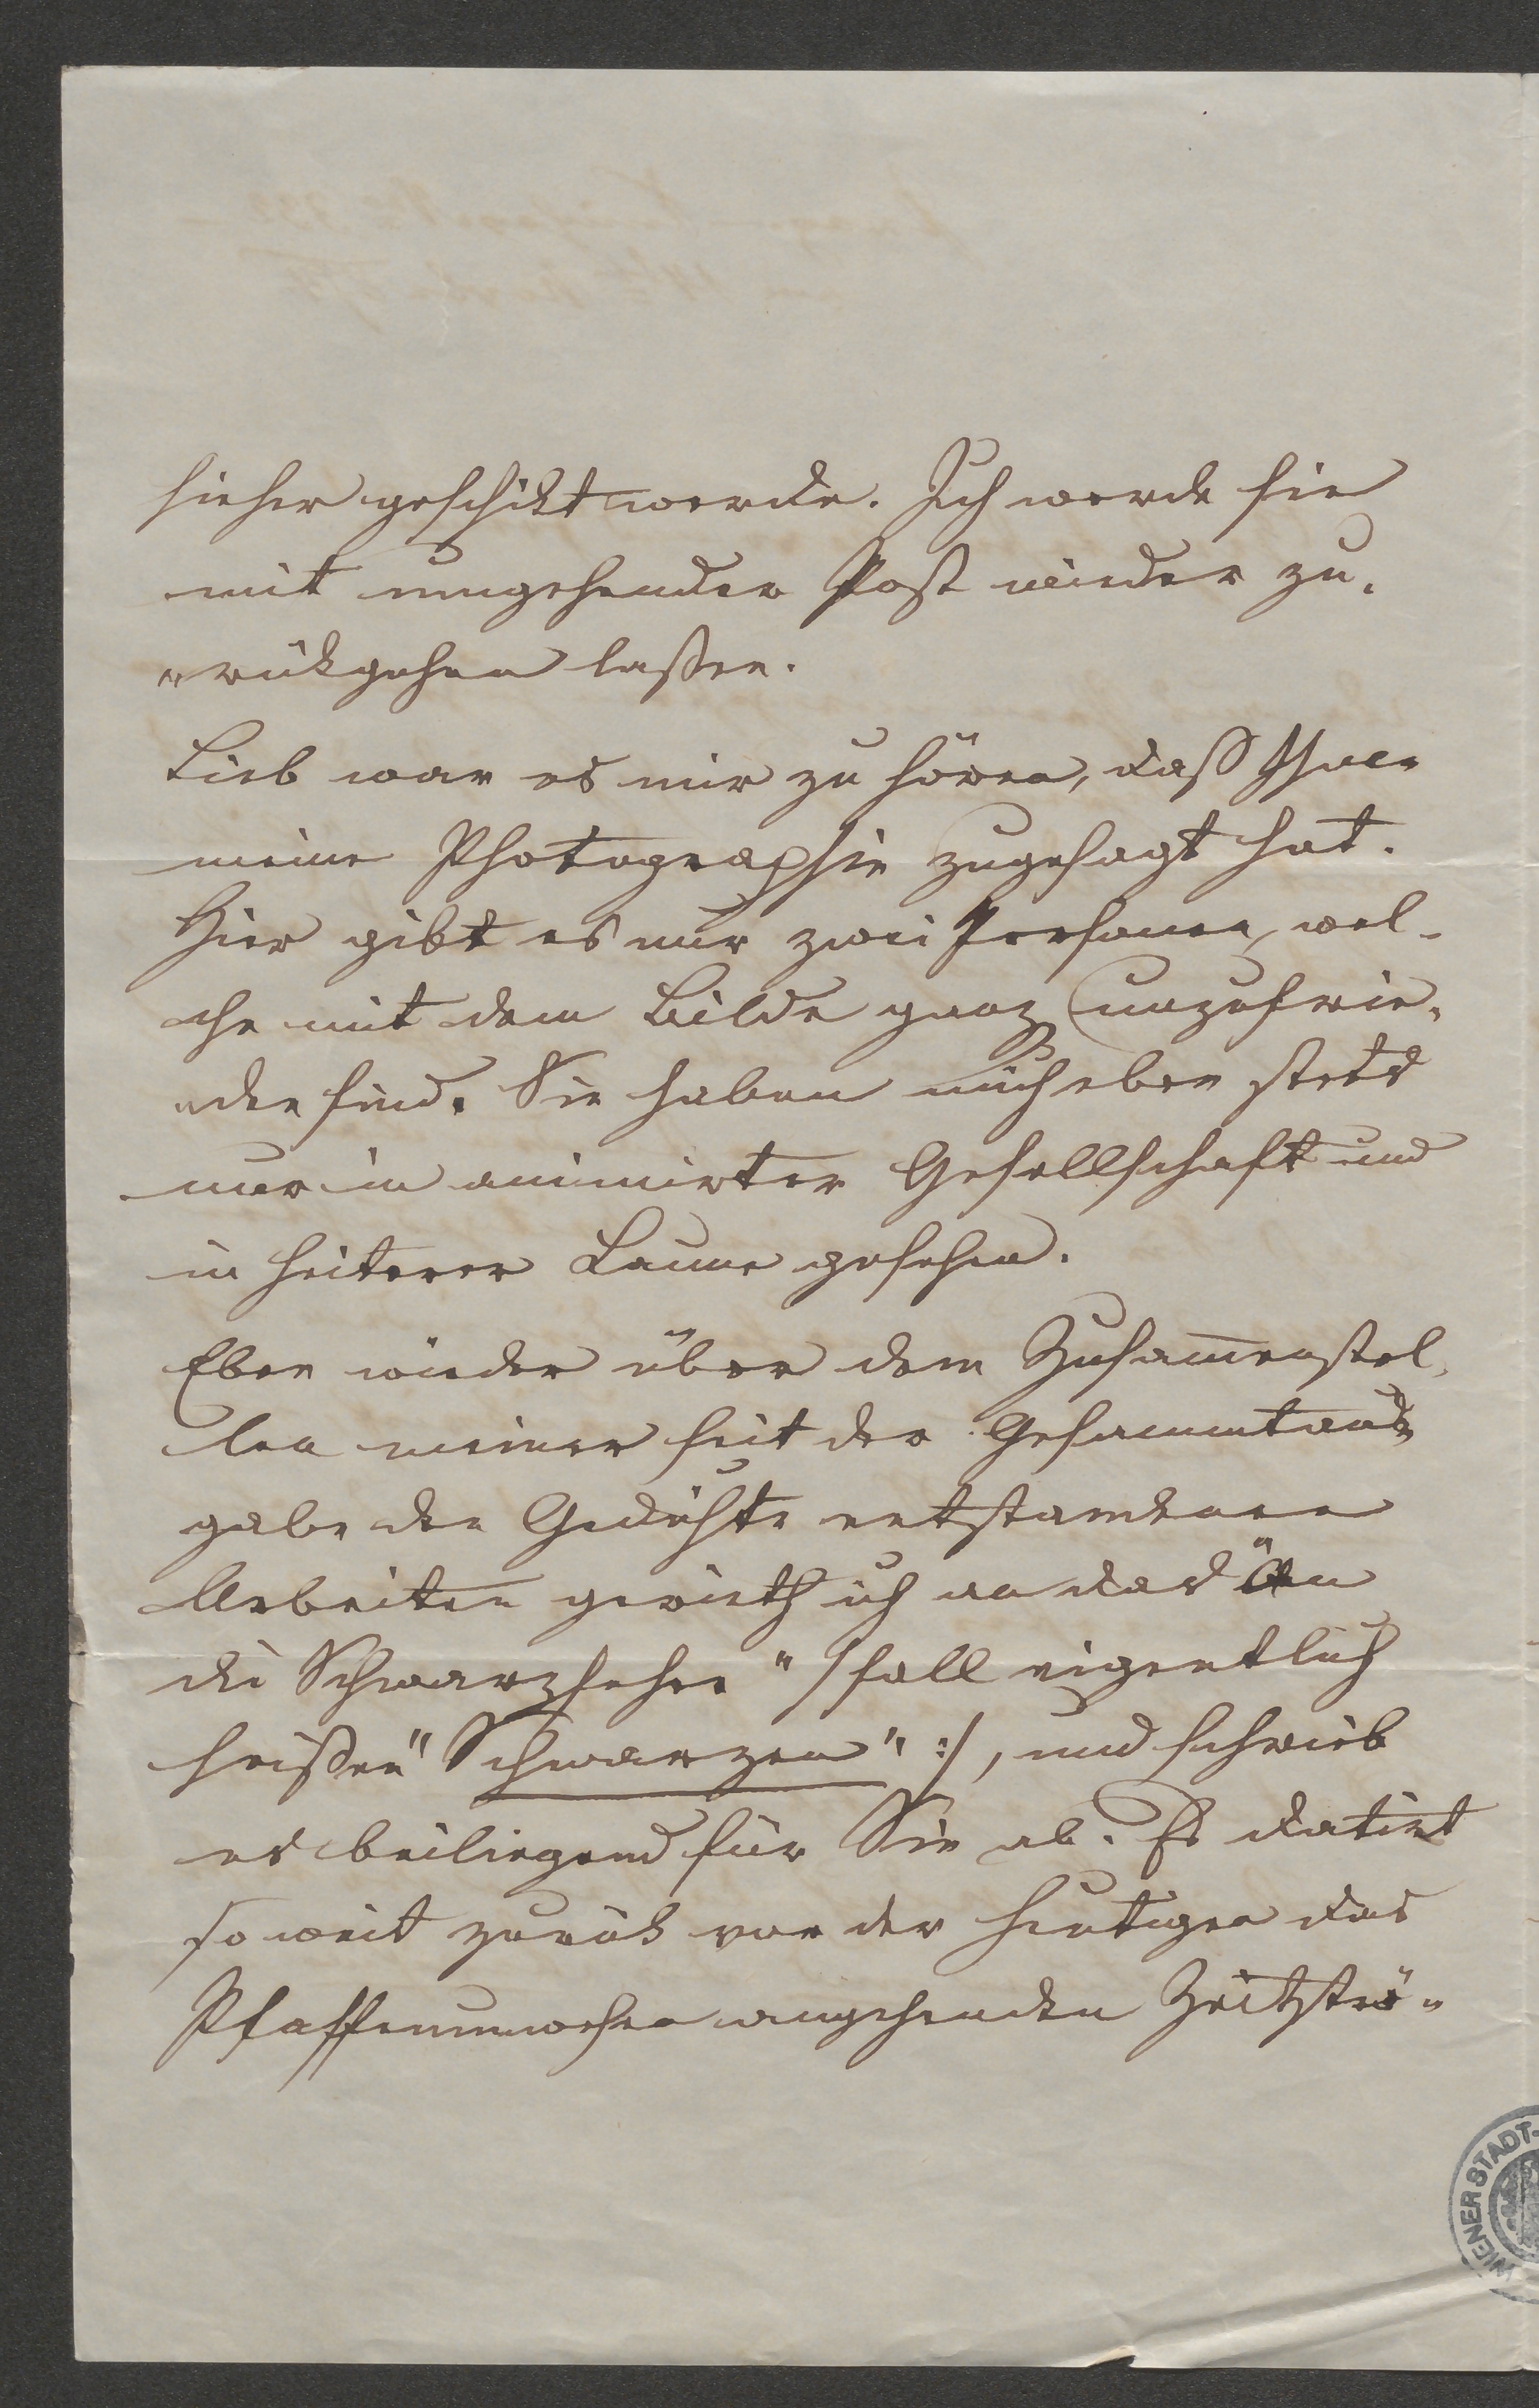 hieher geschikt werde. Ich werde sie
mit umgehender Post wieder zu-
rükgehen laßen.
Lieb war es mir zu hören, daß Ihnen
meine Photographie zugesagt hat.
Hier gibt es nur zwei Personen, wel-
che mit dem Bilde ganz unzufrie-
den sind. Sie haben mich eben stets
nur in animirter Gesellschaft und
in heiterer Laune gesehen.
Eben wieder über dem Zusam̅enstel-
len meiner seit der Gesammtaus-
gabe der Gedichte entstandenen
Arbeiten gerieth ich an das "An
die Schwarzseher" /soll eigentlich
heißen "Schwarzen" :/, und schrieb
es beiliegend für Sie ab. Es datirt
so weit zurük vor der heutigen das
Pfaffenunwesen angehenden Zeitströ-
WIENER STADT-